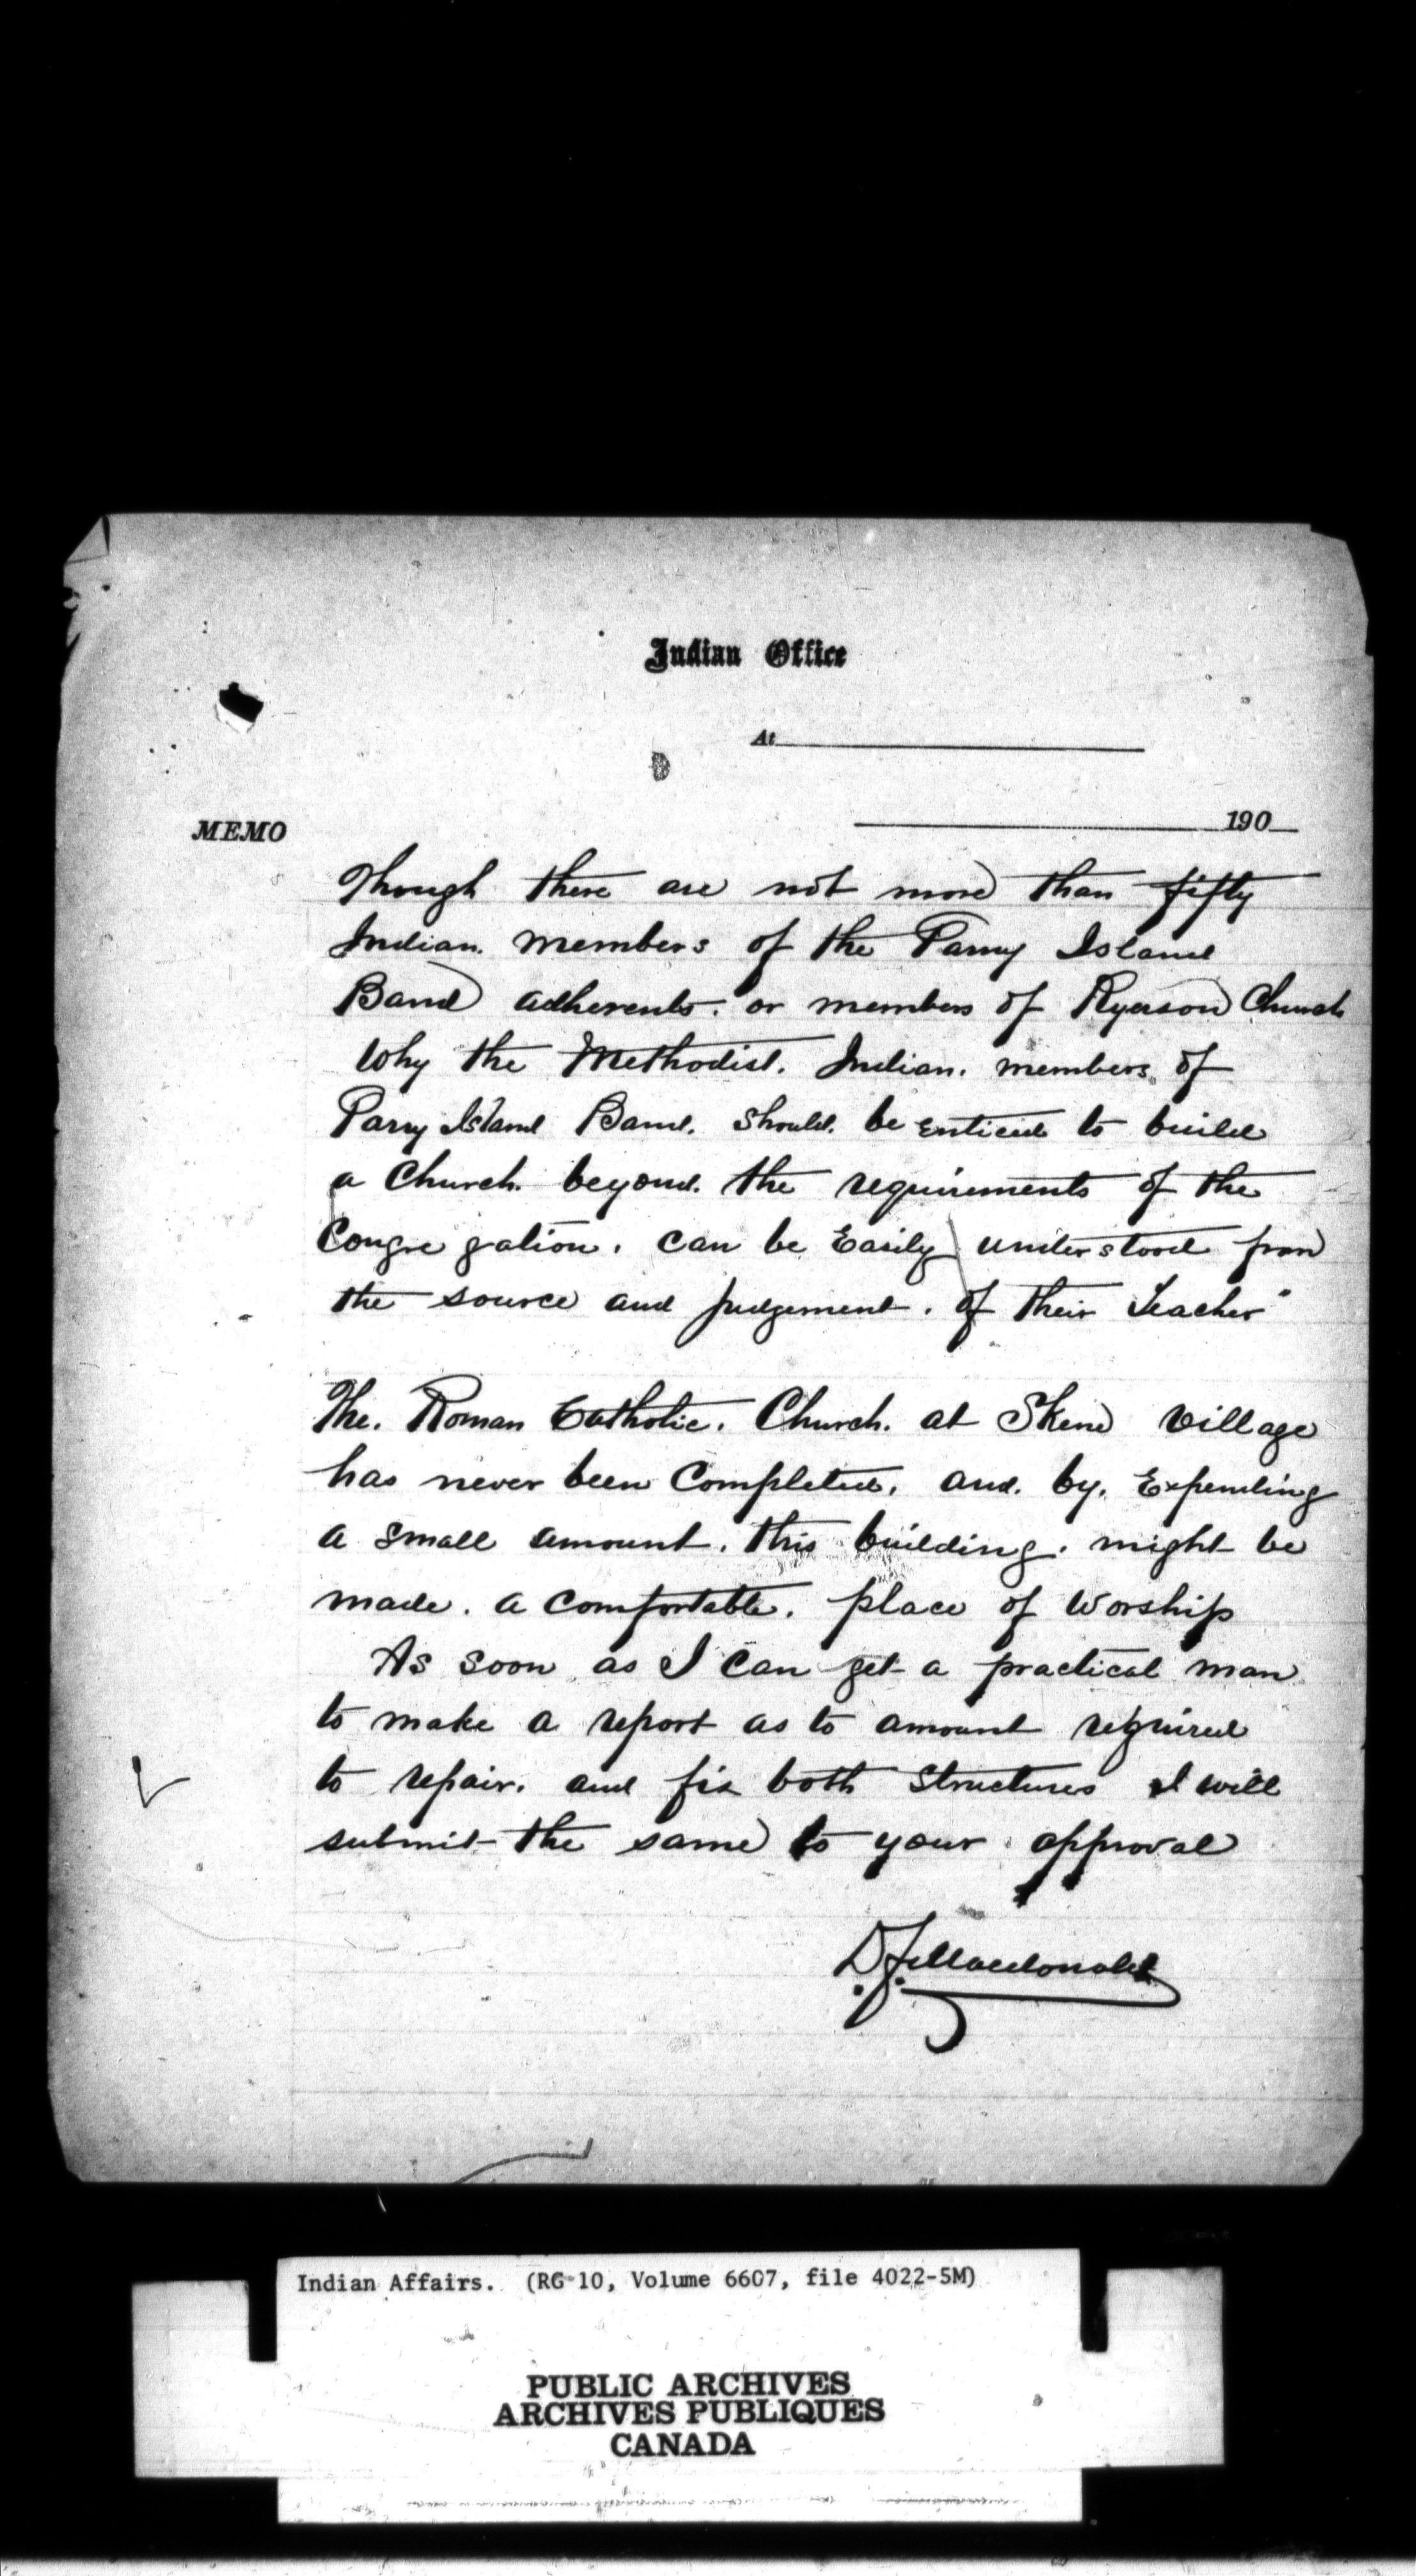 Indian Office
At
190
MEMO
Though there are not more than fifty
Indian. members of the Parry Island
Band adherents. or members of Ryerson Church
Why the Methodist. Indian. members of
Parry Island Band. should. be enticed to build
a Church. beyond. the requirements of the
Congregation. can be Easily understood from
the source and judgement. of their Teacher"
The. Roman Catholic. Church. at Skene Village
has never been Completed. and. by. Expending
a small amount. this building. might be
made. a comfortable. place of Worship
As soon as I can get a practical man
to make a report as to amount required
to repair. and fix both structures I will
submit the same to your approval
D.F. Macdonald
Indian Affairs. (RG 10, Volume 6607, file 4022-5M)
PUBLIC ARCHIVES
ARCHIVES PUBLIQUES
CANADA